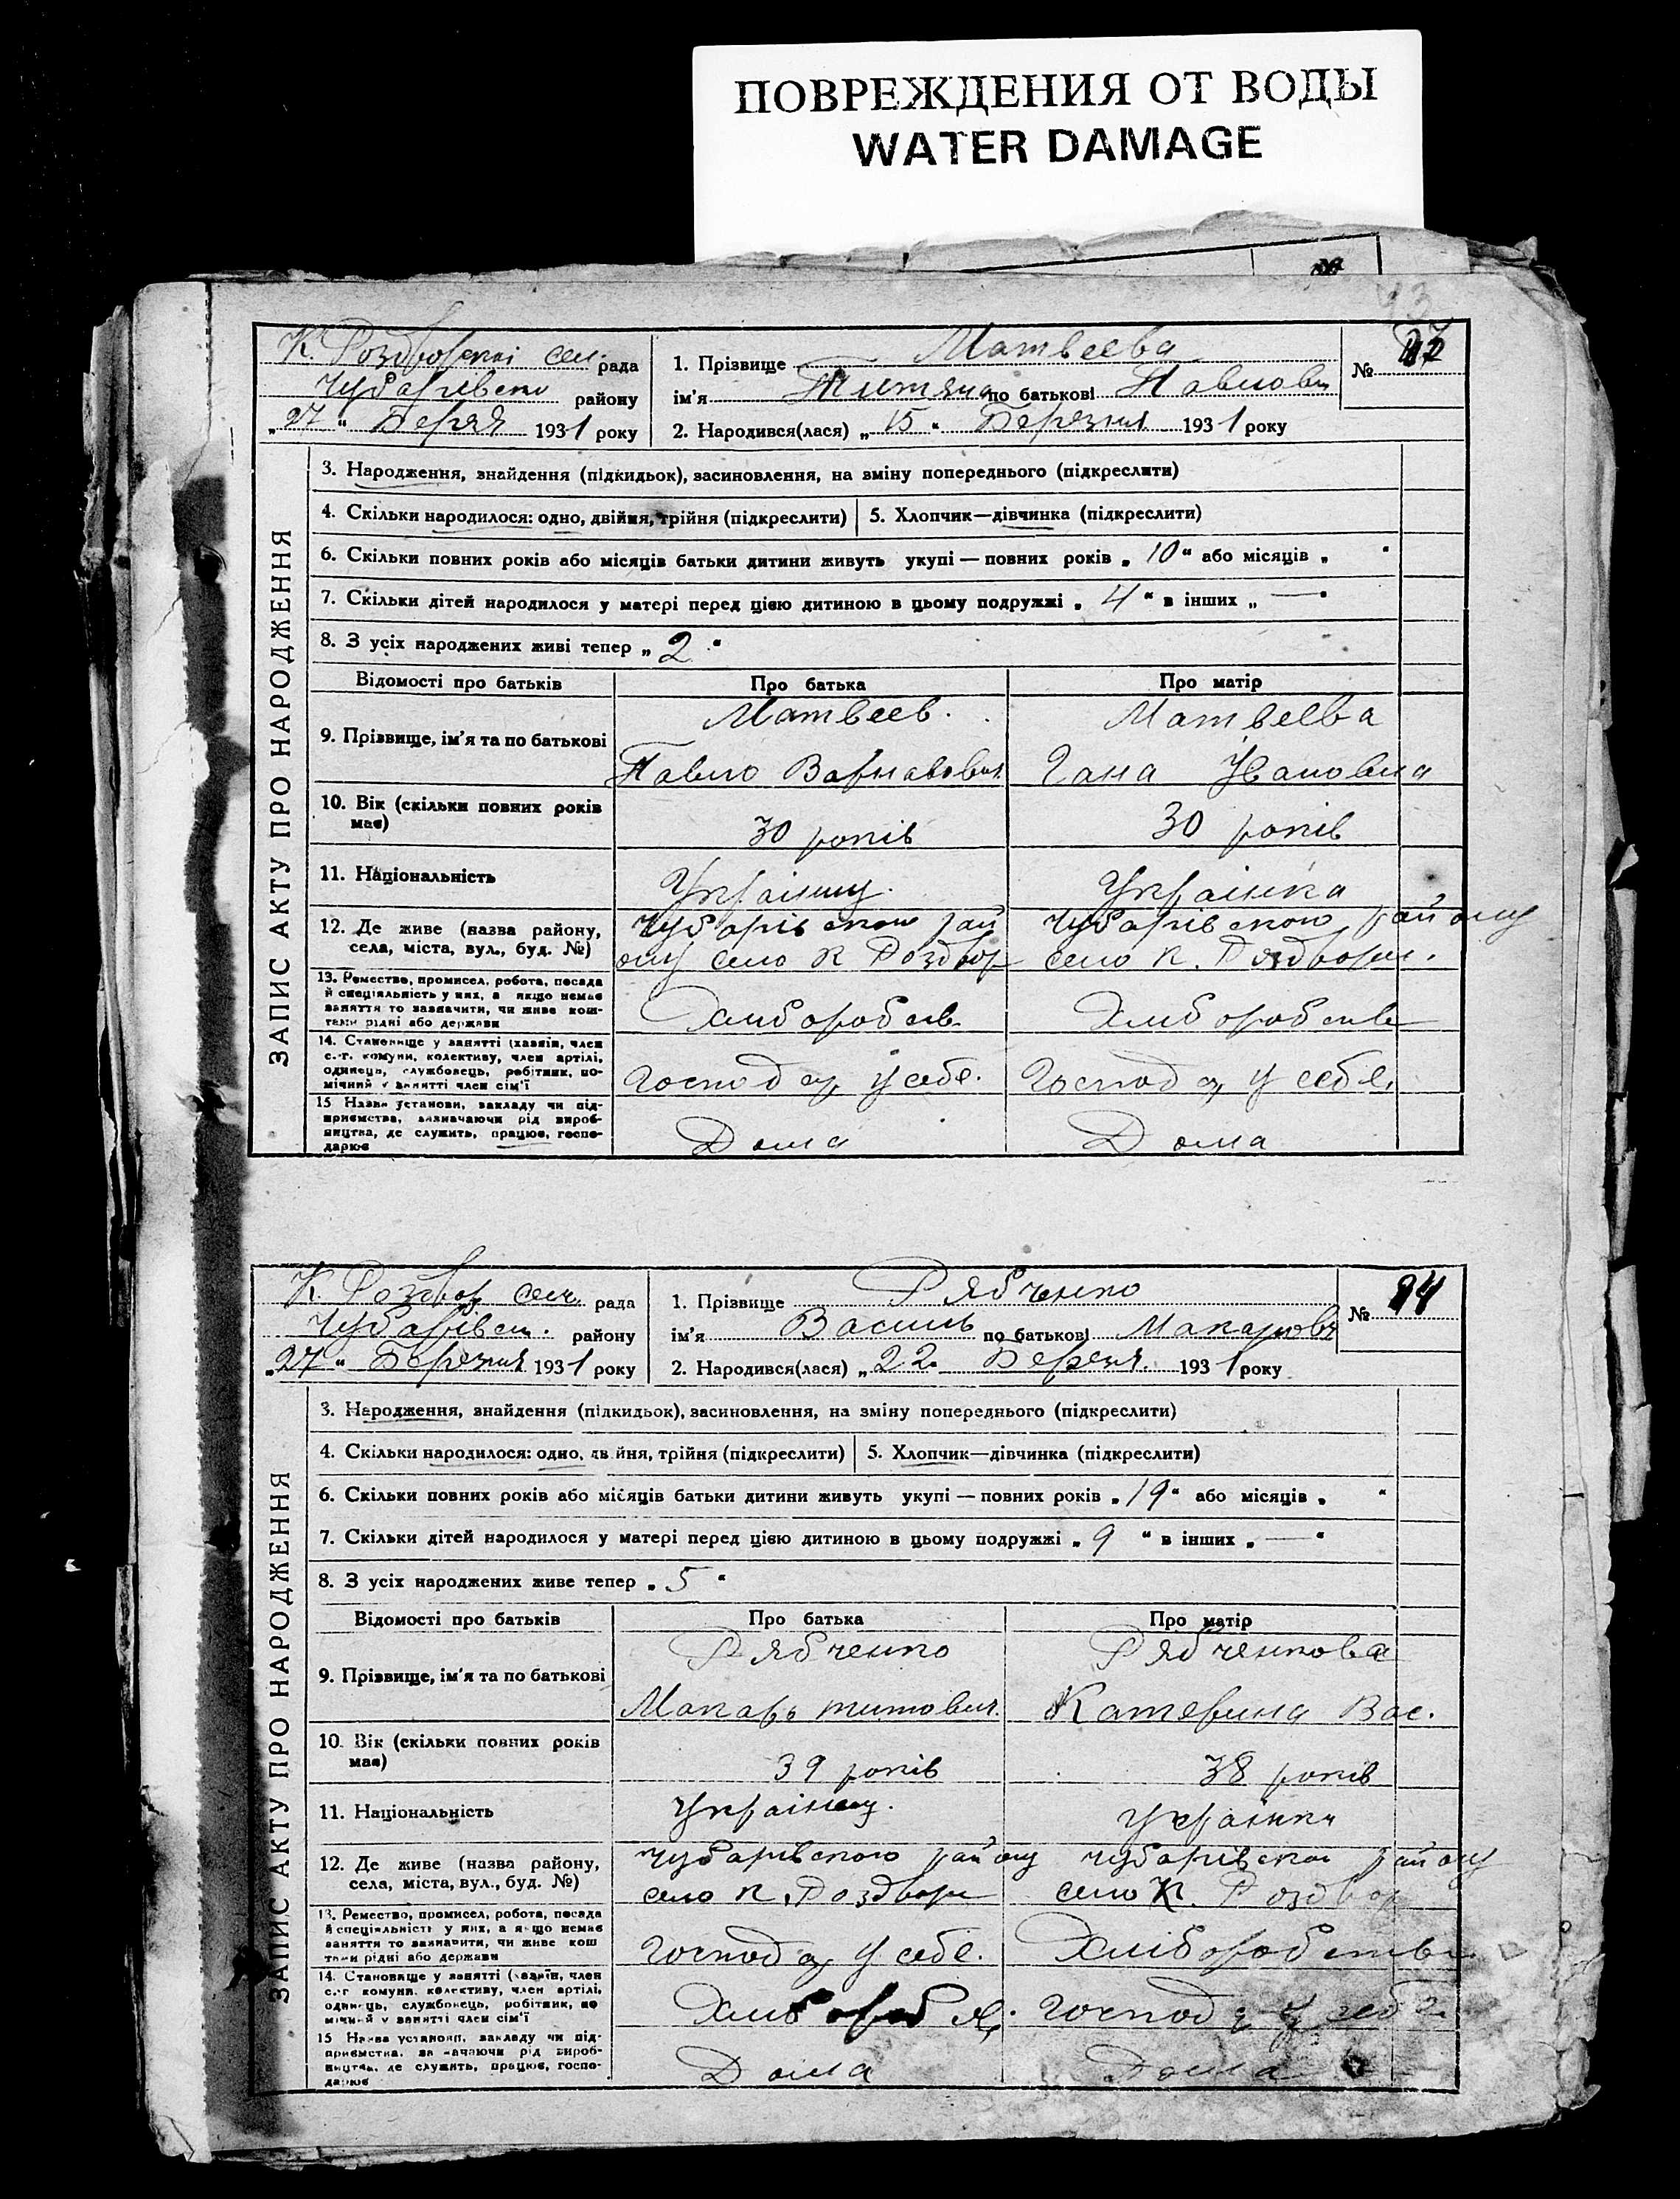 ПОВРЕЖДЕНИЯ ОТ ВОДЫ
WATER DAMAGE
К. Роздорської сел. рада
Чубарівсько району
„27“ Берез 1931 року
1. Прізвище Матвеева
ім'я Титяна по батькові Павловн
№
2. Народився(лася) „15“ Березня 1931 року
ЗАПИС АКТУ ПРО НАРОДЖЕННЯ
3. Народження, знайдення (підкидьок), засиновлення, на зміну попереднього (підкреслити)
4. Скільки народилося: одно, двійня, трійня (підкреслити) 5. Хлопчик—дівчинка (підкреслити)
6. Скільки повних років або місяців батьки дитини живуть укупі — повних років „10“ або місяців „ “
7. Скільки дітей народилося у матері перед цією дитиною в цьому подружжі „4“ в інших „—“
8. З усіх народжених живі тепер „2“
Відомості про батьків Про батька Про матір
9. Прізвище, ім'я та по батькові
Матвеев. Матвеева
Павло Варнавович Гана Ивановна
10. Вік (скільки повних років має)
30 років 30 років
11. Національність
Українец. Українка
12. Де живе (назва району, села, міста, вул., буд. №)
Чубарівского рай Чубарівского району
ону село К Роздор село К. Роздори.
13. Ремество, промисел, робота, посада й спеціяльність у них, а якщо немає заняття то зазначити, чи живе коштами рідні або держави
Хлиборобств Хлиборобств
14. Становище у занятті (хазяїн, член с.-г. комуни, колективу, член артілі, одинець, службовець, робітник, помічний у занятті член сім'ї
Господар у себе. Господар у себе.
15 Назва установи, закладу чи підприємства, зазначаючи рід виробництва, де служить, працює, господарює
Дома Дома
К. Роздор сел. рада
Чубарівск. району
„27“ Березня 1931 року
1. Прізвище Рябченко
ім'я Василь по батькові Макарович
№ 24
2. Народився(лася) „22 Березня 1931 року
ЗАПИС АКТУ ПРО НАРОДЖЕННЯ
3. Народження, знайдення (підкидьок), засиновлення, на зміну попереднього (підкреслити)
4. Скільки народилося: одно, двійня, трійня (підкреслити) 5. Хлопчик—дівчинка (підкреслити)
6. Скільки повних років або місяців батьки дитини живуть укупі — повних років „19“ або місяців „ “
7. Скільки дітей народилося у матері перед цією дитиною в цьому подружжі „9“ в інших „—“
8. З усіх народжених живе тепер „5“
Відомості про батьків Про батька Про матір
9. Прізвище, ім'я та по батькові
Рябченко Рябченкова
Макарь титович. Катерина Вас.
10. Вік (скільки повних років має)
39 років 38 років
11. Національність
Українец. Українка
12. Де живе (назва району, села, міста, вул., буд. №)
Чубарівского району Чубарівского району
село К. Роздори село К. Роздор
13. Ремество, промисел, робота, посада й спеціяльність у них, а якщо немає заняття то зазначити, чи живе коштами рідні або держави
Господар у себе. Хлиборобства
14. Становище у занятті (хазяїн, член с.-г. комуни, колективу, член артілі, одинець, службовець, робітник, помічний у занятті член сім'ї
Господар у себе
15 Назва установи, закладу чи підприємства, зазначаючи рід виробництва, де служить, працює, господарює
Дома Дома